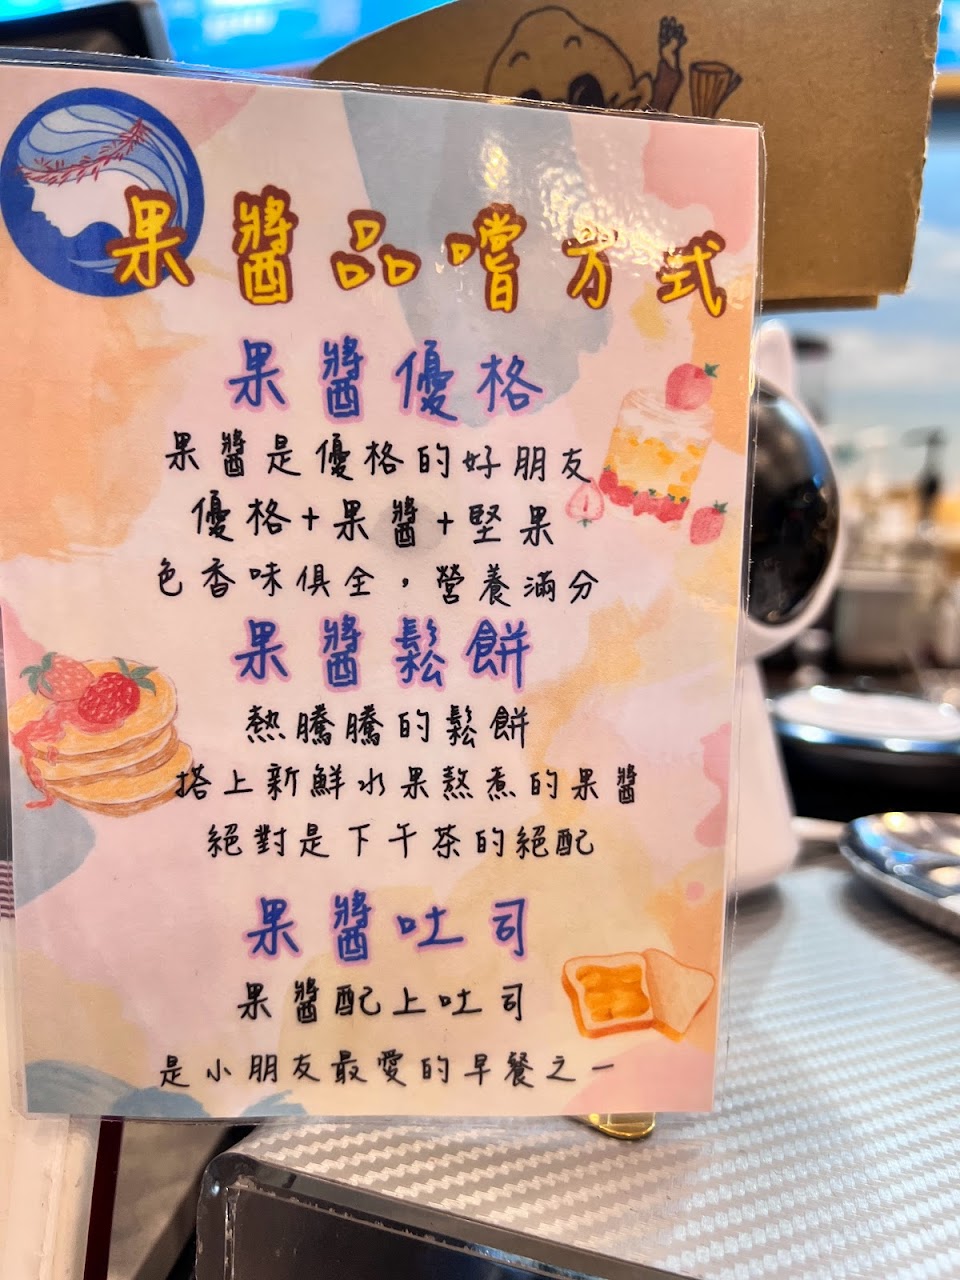 果醬品嚐方式
果醬優格
果醬是優格的好朋友
優格+果醬+堅果
色香味俱全，營養滿分
果醬鬆餅
熱騰騰的鬆餅
搭上新鮮水果熬煮的果醬
絕對是下午茶的絕配
果醬吐司
果醬配上吐司
是小朋友最愛的早餐之一